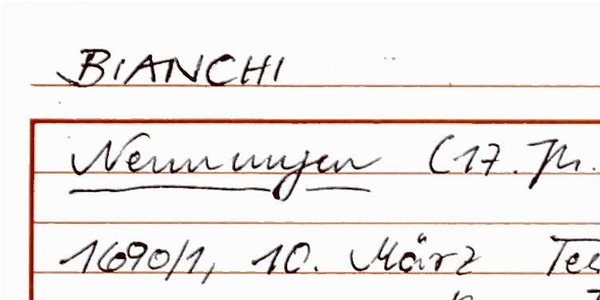 BIANCHI
Nennungen (17. Jh.
1690/1, 10. März Tes